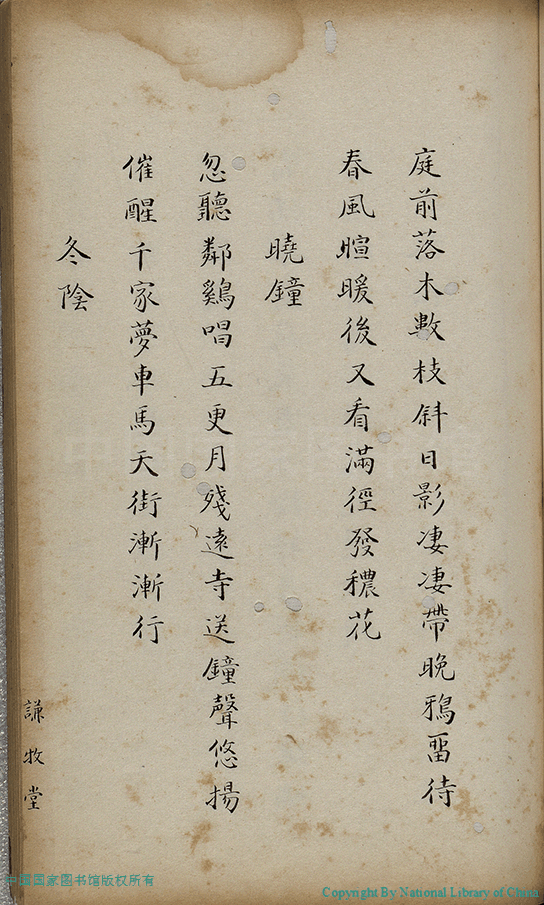 庭前落木數枝斜日影凄凄帶晚鴉畱待
春風暄暖後又看滿徑發穠花
曉鐘
忽聽鄰鷄唱五更月殘遠寺送鐘聲悠揚
催醒千家夢車馬天街漸漸行
冬陰
謙牧堂
中国国家图书馆版权所有
Copyright By National Library of China